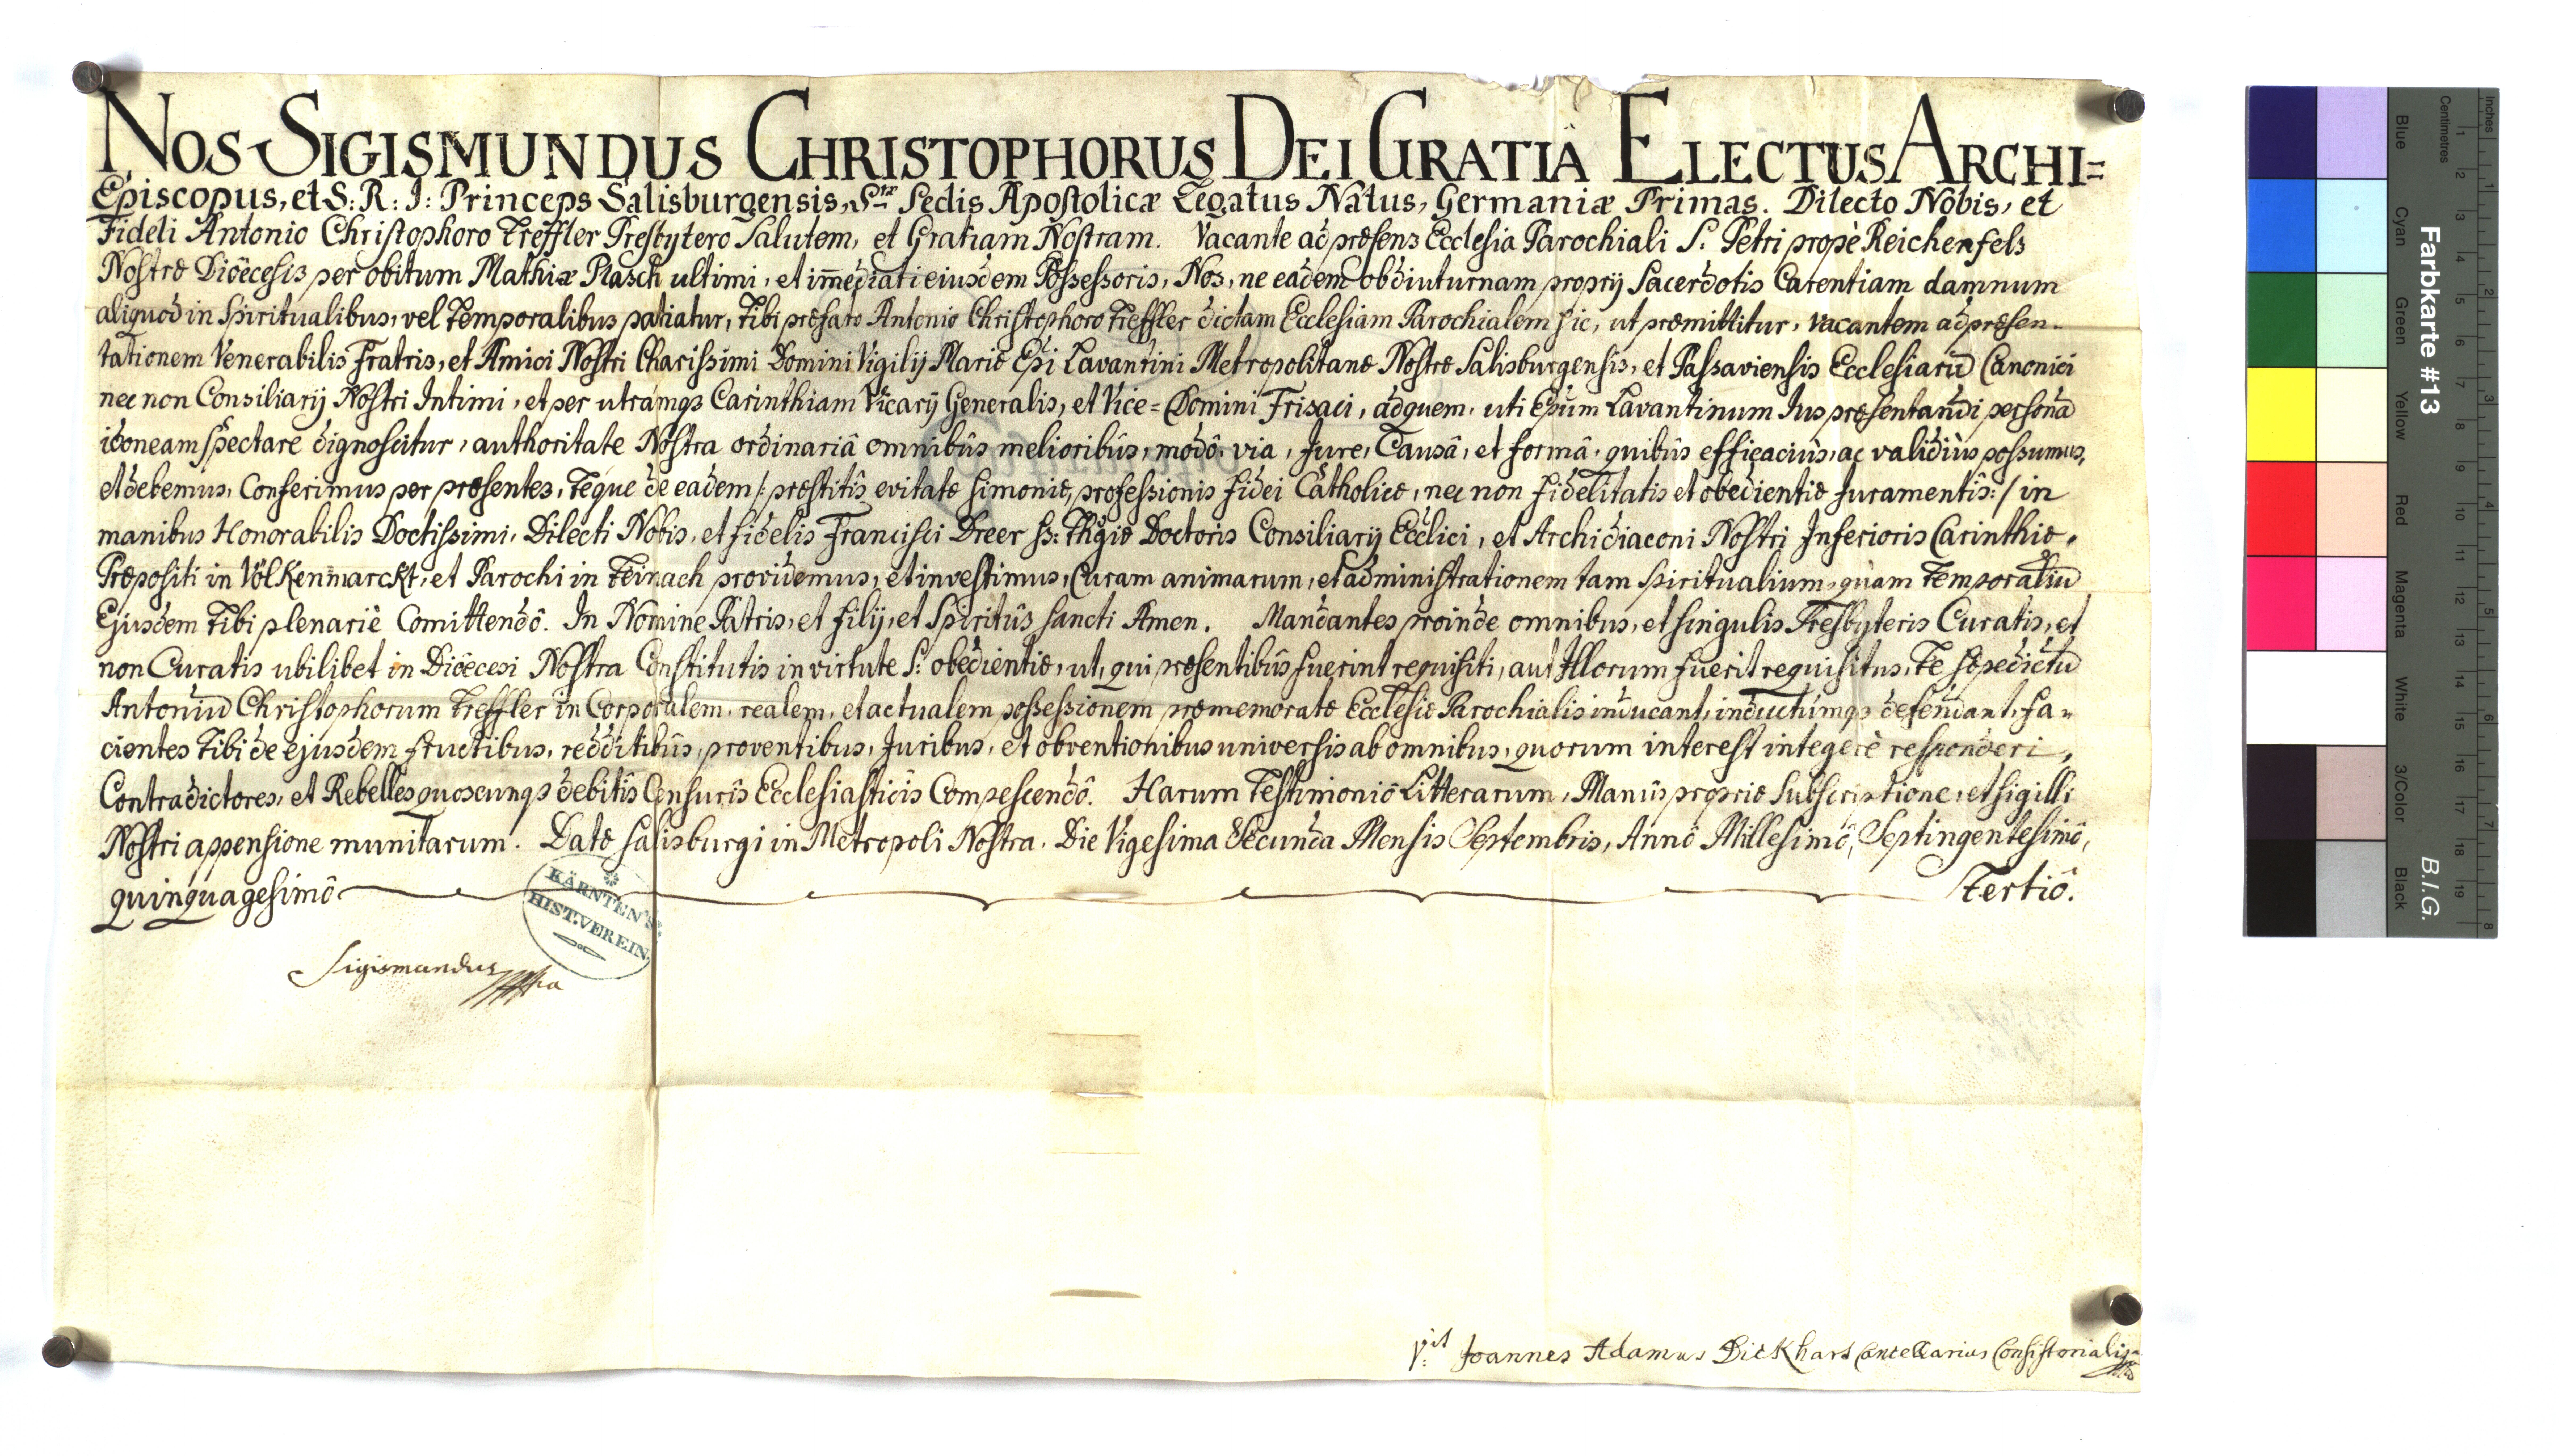 NOS SIGISMUNDUS CHRISTOPHORUS DEI GRATIÂ ELECTUS ARCHI=
Episcopus, et S: R: I: Princeps Salisburgensis, Stæ Sedis Apostolicæ Legatus Natus, Germaniæ Primas. Dilecto Nobis, et
Fideli Antonio Christophoro Treffler Presbytero Salutem, et Gratiam Nostram. Vacante ad præsens Ecclesia Parochiali S: Petri propè Reichenfels
Nostræ Diœcesis per obitum Mathiæ Plasch ultimi, et im̄ediati eiusdem Possessoris, Nos, ne eadem ob diuturnam proprij Sacerdotis Carentiam damnum
aliquod in Spiritualibus, vel Temporalibus patiatur, Tibi præfato Antonio Christophoro Treffler dictam Ecclesiam Parochialem sic, ut præmittitur, vacantem ad præsen-
tationem Venerabilis Fratris, et Amici Nostri Charissimi Domini Vigilij Mariæ Ep̄i Lavantini Metropolitanæ Nostræ Salisburgensis, et Passaviensis Ecclesiarū Canonici
nec non Consiliarij Nostri Intimi, et per utramqȝ Carinthiam Vicarij Generalis, et Vice=Domini Frisaci, ad quem, uti Ep̄um Lavantinum Jus præsentandi personā
idoneam spectare dignoscitur, authoritate Nostra ordinariâ omnibûs melioribûs, modô, via, Jure, Causâ, et formâ, quibûs efficaciùs, ac validiùs possumus,
et debemus, Conferimus per præsentes, Teque de eadem /: præstitîs evitatæ Simoniæ, professionis fidei Catholicæ, nec non fidelitatis et obedientiæ Juramentîs :/ in
manibus Honorabilis Doctissimi, Dilecti Nobis, et fidelis Francisci Dreer SS: Thgiæ Doctoris Consiliarij Ecclici, et Archidiaconi Nostri Inferioris Carinthiæ,
Præpositi in Völkenmarckt, et Parochi in Teinach providemus, et investimus, Curam animarum, et administrationem tam Spiritualium, quàm Temporaliū
Ejusdem Tibi plenariè Comittendô. In Nomine Patris, et Filij, et Spiritûs Sancti Amen. Mandantes proinde omnibus, et singulis Presbyteris Curatis, et
non Curatis ubilibet in Diœcesi Nostra Constitutis in virtute S: obedientiæ, ut, qui præsentibûs fuerint requisiti, aut Illorum fuerit requisitus, Te sæpedictū
Antoniū Christophorum Treffler in Corporalem, realem, et actualem possessionem præmemoratæ Ecclesiæ Parochialis inducant, inductúmqȝ defendant, fa-
cientes Tibi de ejusdem fructibus, redditibûs, proventibus, Juribus, et obventionibus universis ab omnibus, quorum interest integerè responderi,
Contradictores, et Rebelles quoscunqȝ debitîs Censurîs Ecclesiasticîs Compescendô. Harum Testimoniô Litterarum, Manûs propriæ Subscriptione, et sigilli
Nostri appensione munitarum. Datæ Salisburgi in Metropoli Nostra. Die Vigesima Secunda Mensis Septembris, Annô Millesimô, Septingentesimô,
quinquagesimô Tertiô.
KÄRNTEN'S
HIST. VEREIN.
Sigismundus
Vidit Joannes Adamus Dickhart Cancellarius Consistorialis
Farbkarte #13
B.I.G.
Inches
Centimetres
Blue
Cyan
Green
Yellow
Red
Magenta
White
3/Color
Black
1 2 3 4 5 6 7 8 9 10 11 12 13 14 15 16 17 18 19
1 2 3 4 5 6 7 8